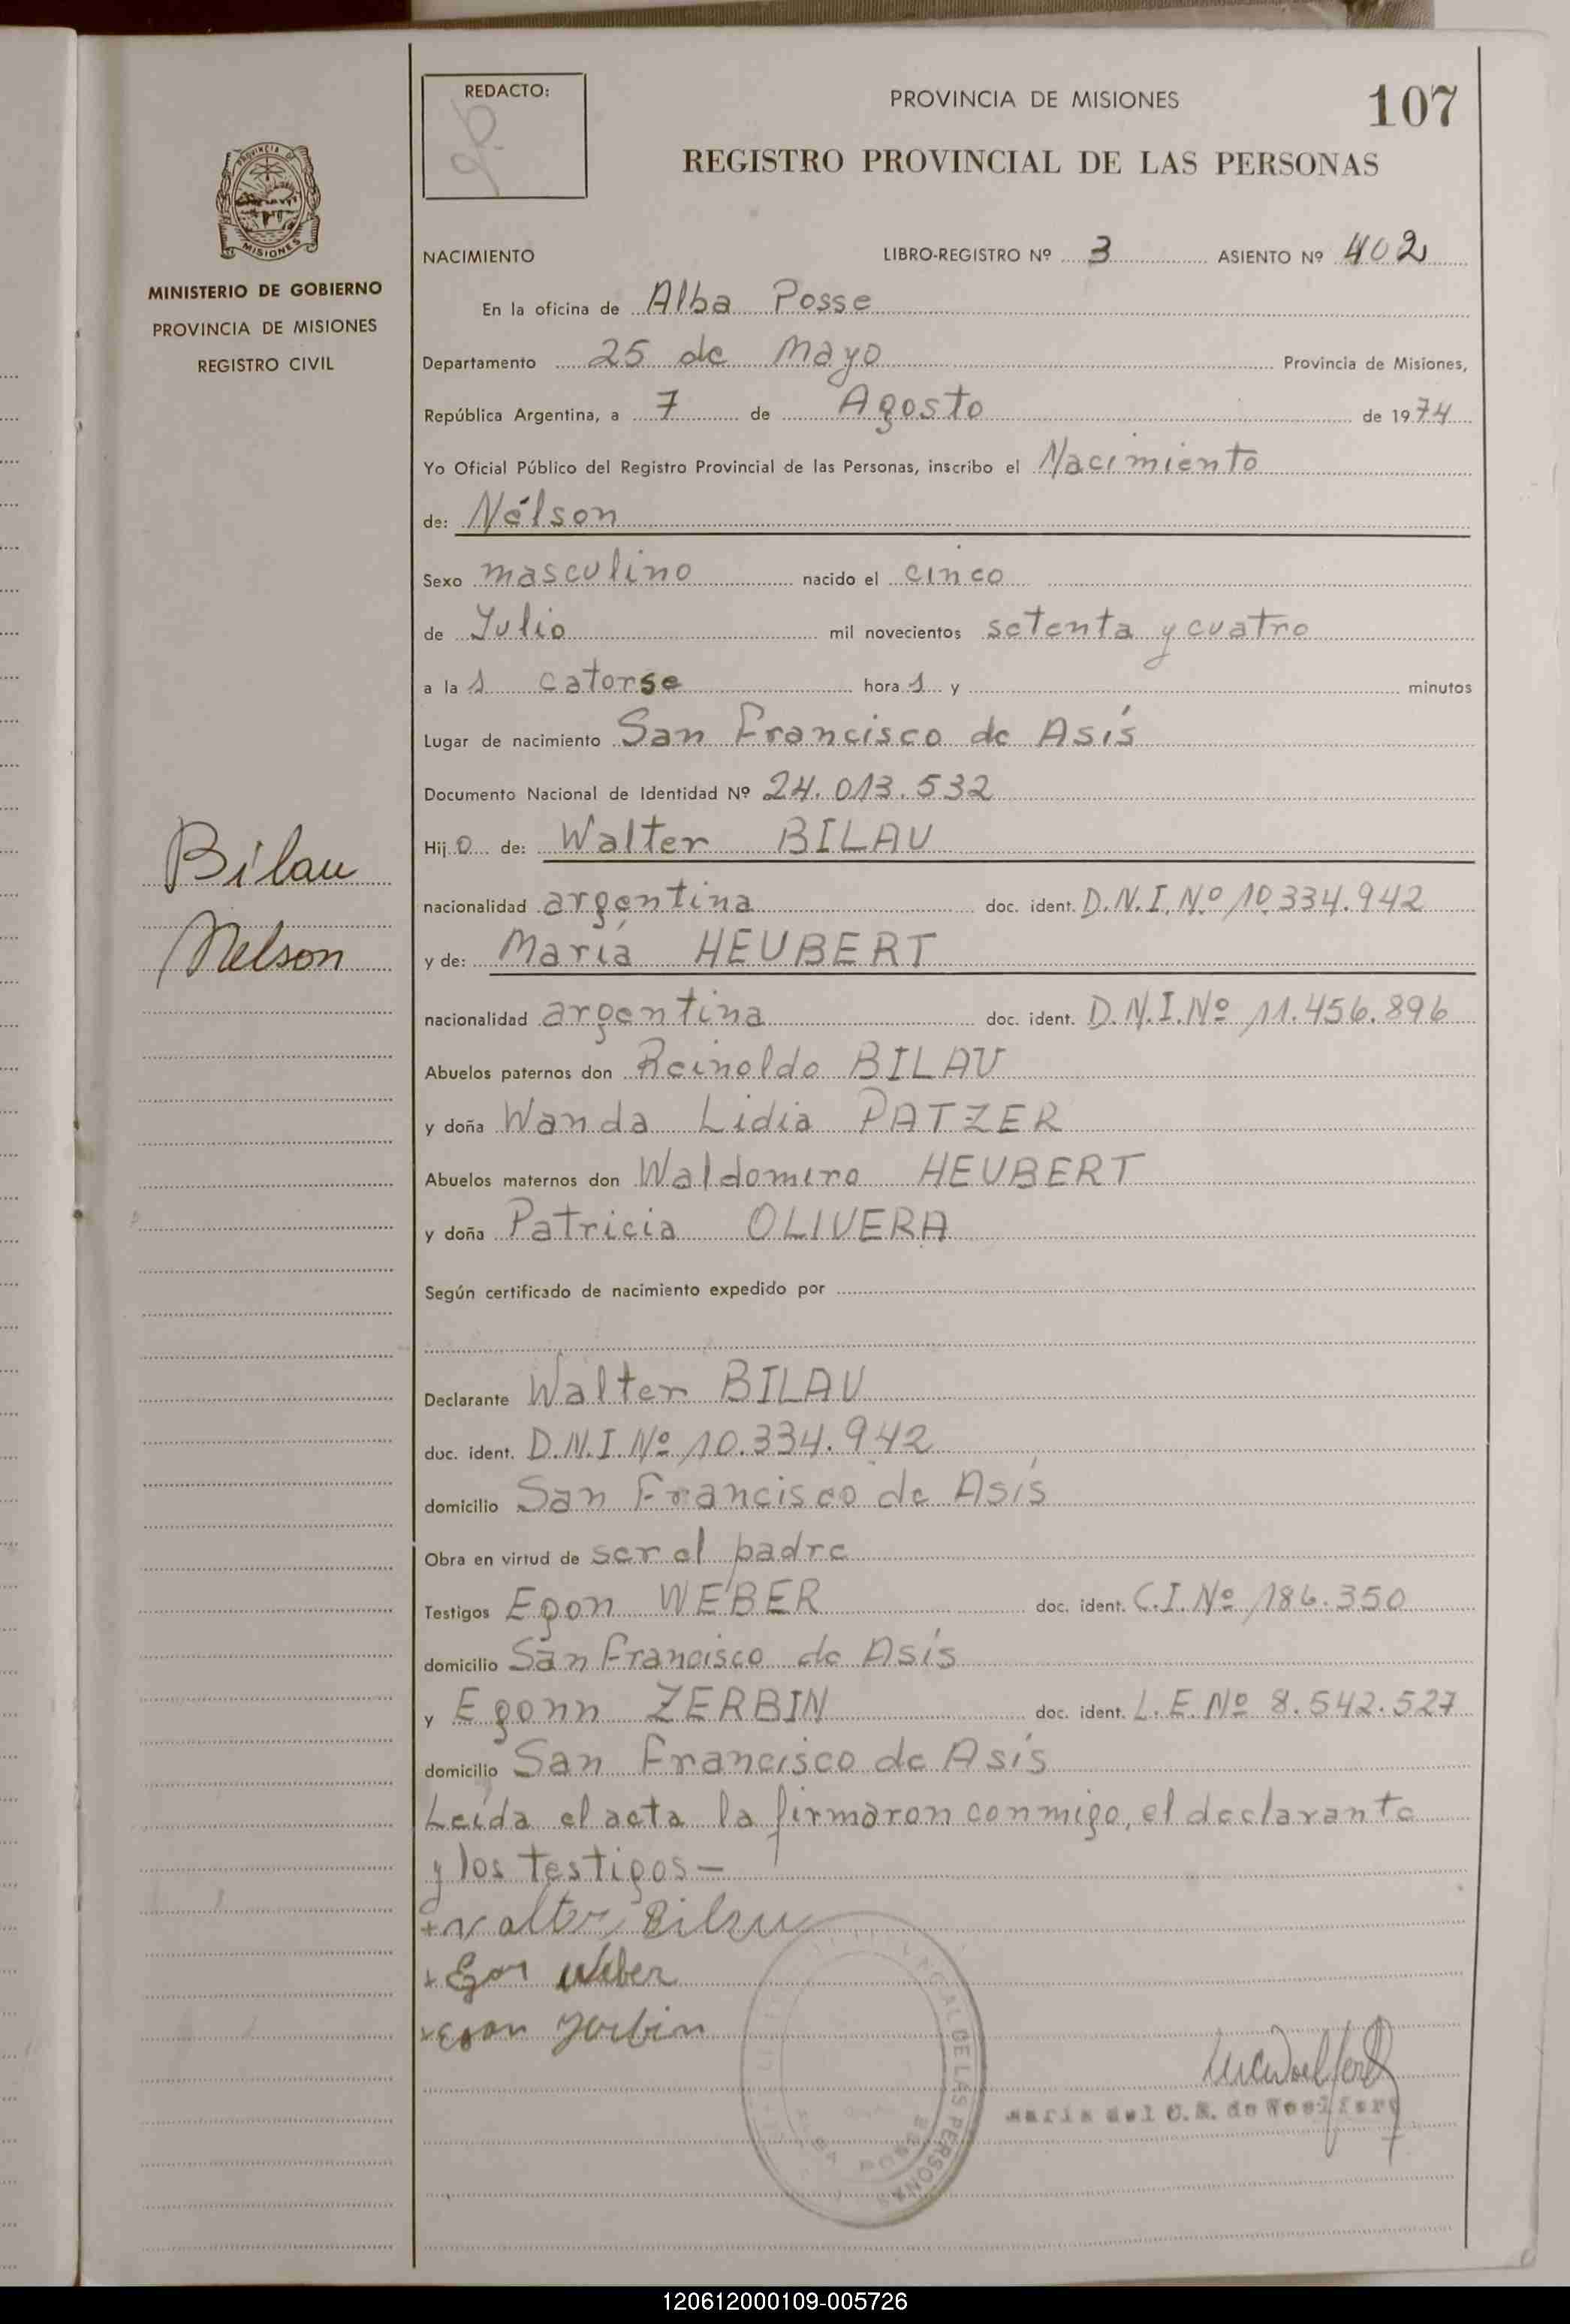 REDACTO:
PROVINCIA DE MISIONES
107
REGISTRO PROVINCIAL DE LAS PERSONAS
PROVINCIA DE
MISIONES
MINISTERIO DE GOBIERNO
PROVINCIA DE MISIONES
REGISTRO CIVIL
NACIMIENTO LIBRO-REGISTRO Nº 3 ASIENTO Nº 402
En la oficina de Alba Posse
Departamento 25 de Mayo Provincia de Misiones,
República Argentina, a 7 de Agosto de 1974
Yo Oficial Público del Registro Provincial de las Personas, inscribo el Nacimiento
de: Nélson
Sexo masculino nacido el cinco
de Julio mil novecientos setenta y cuatro
a la s catorse hora s y minutos
Lugar de nacimiento San Francisco de Asís
Documento Nacional de Identidad Nº 24.013.532
Hijo de: Walter BILAU
Bilau
nacionalidad argentina doc. ident. D.N.I. Nº 10.334.942
Nelson
y de: María HEUBERT
nacionalidad argentina doc. ident. D.N.I. Nº 11.456.896
Abuelos paternos don Reinoldo BILAU
y doña Wanda Lidia PATZER
Abuelos maternos don Waldomero HEUBERT
y doña Patricia OLIVERA
Según certificado de nacimiento expedido por
Declarante Walter BILAU
doc. ident. D.N.I Nº 10.334.942
domicilio San Francisco de Asís
Obra en virtud de ser el padre
Testigos Egon WEBER doc. ident. C.I. Nº 186.350
domicilio San Francisco de Asís
y Egonn ZERBIN doc. ident. L.E. Nº 8.542.527
domicilio San Francisco de Asís
Leída el acta la firmaron conmigo, el declarante
y los testigos-
+ Valter Bilau
+ Egon Weber
+ Egon Zerbin
DE LAS PERSONAS
POSSE
Maria del C. R. de Woelfert
120612000109-005726